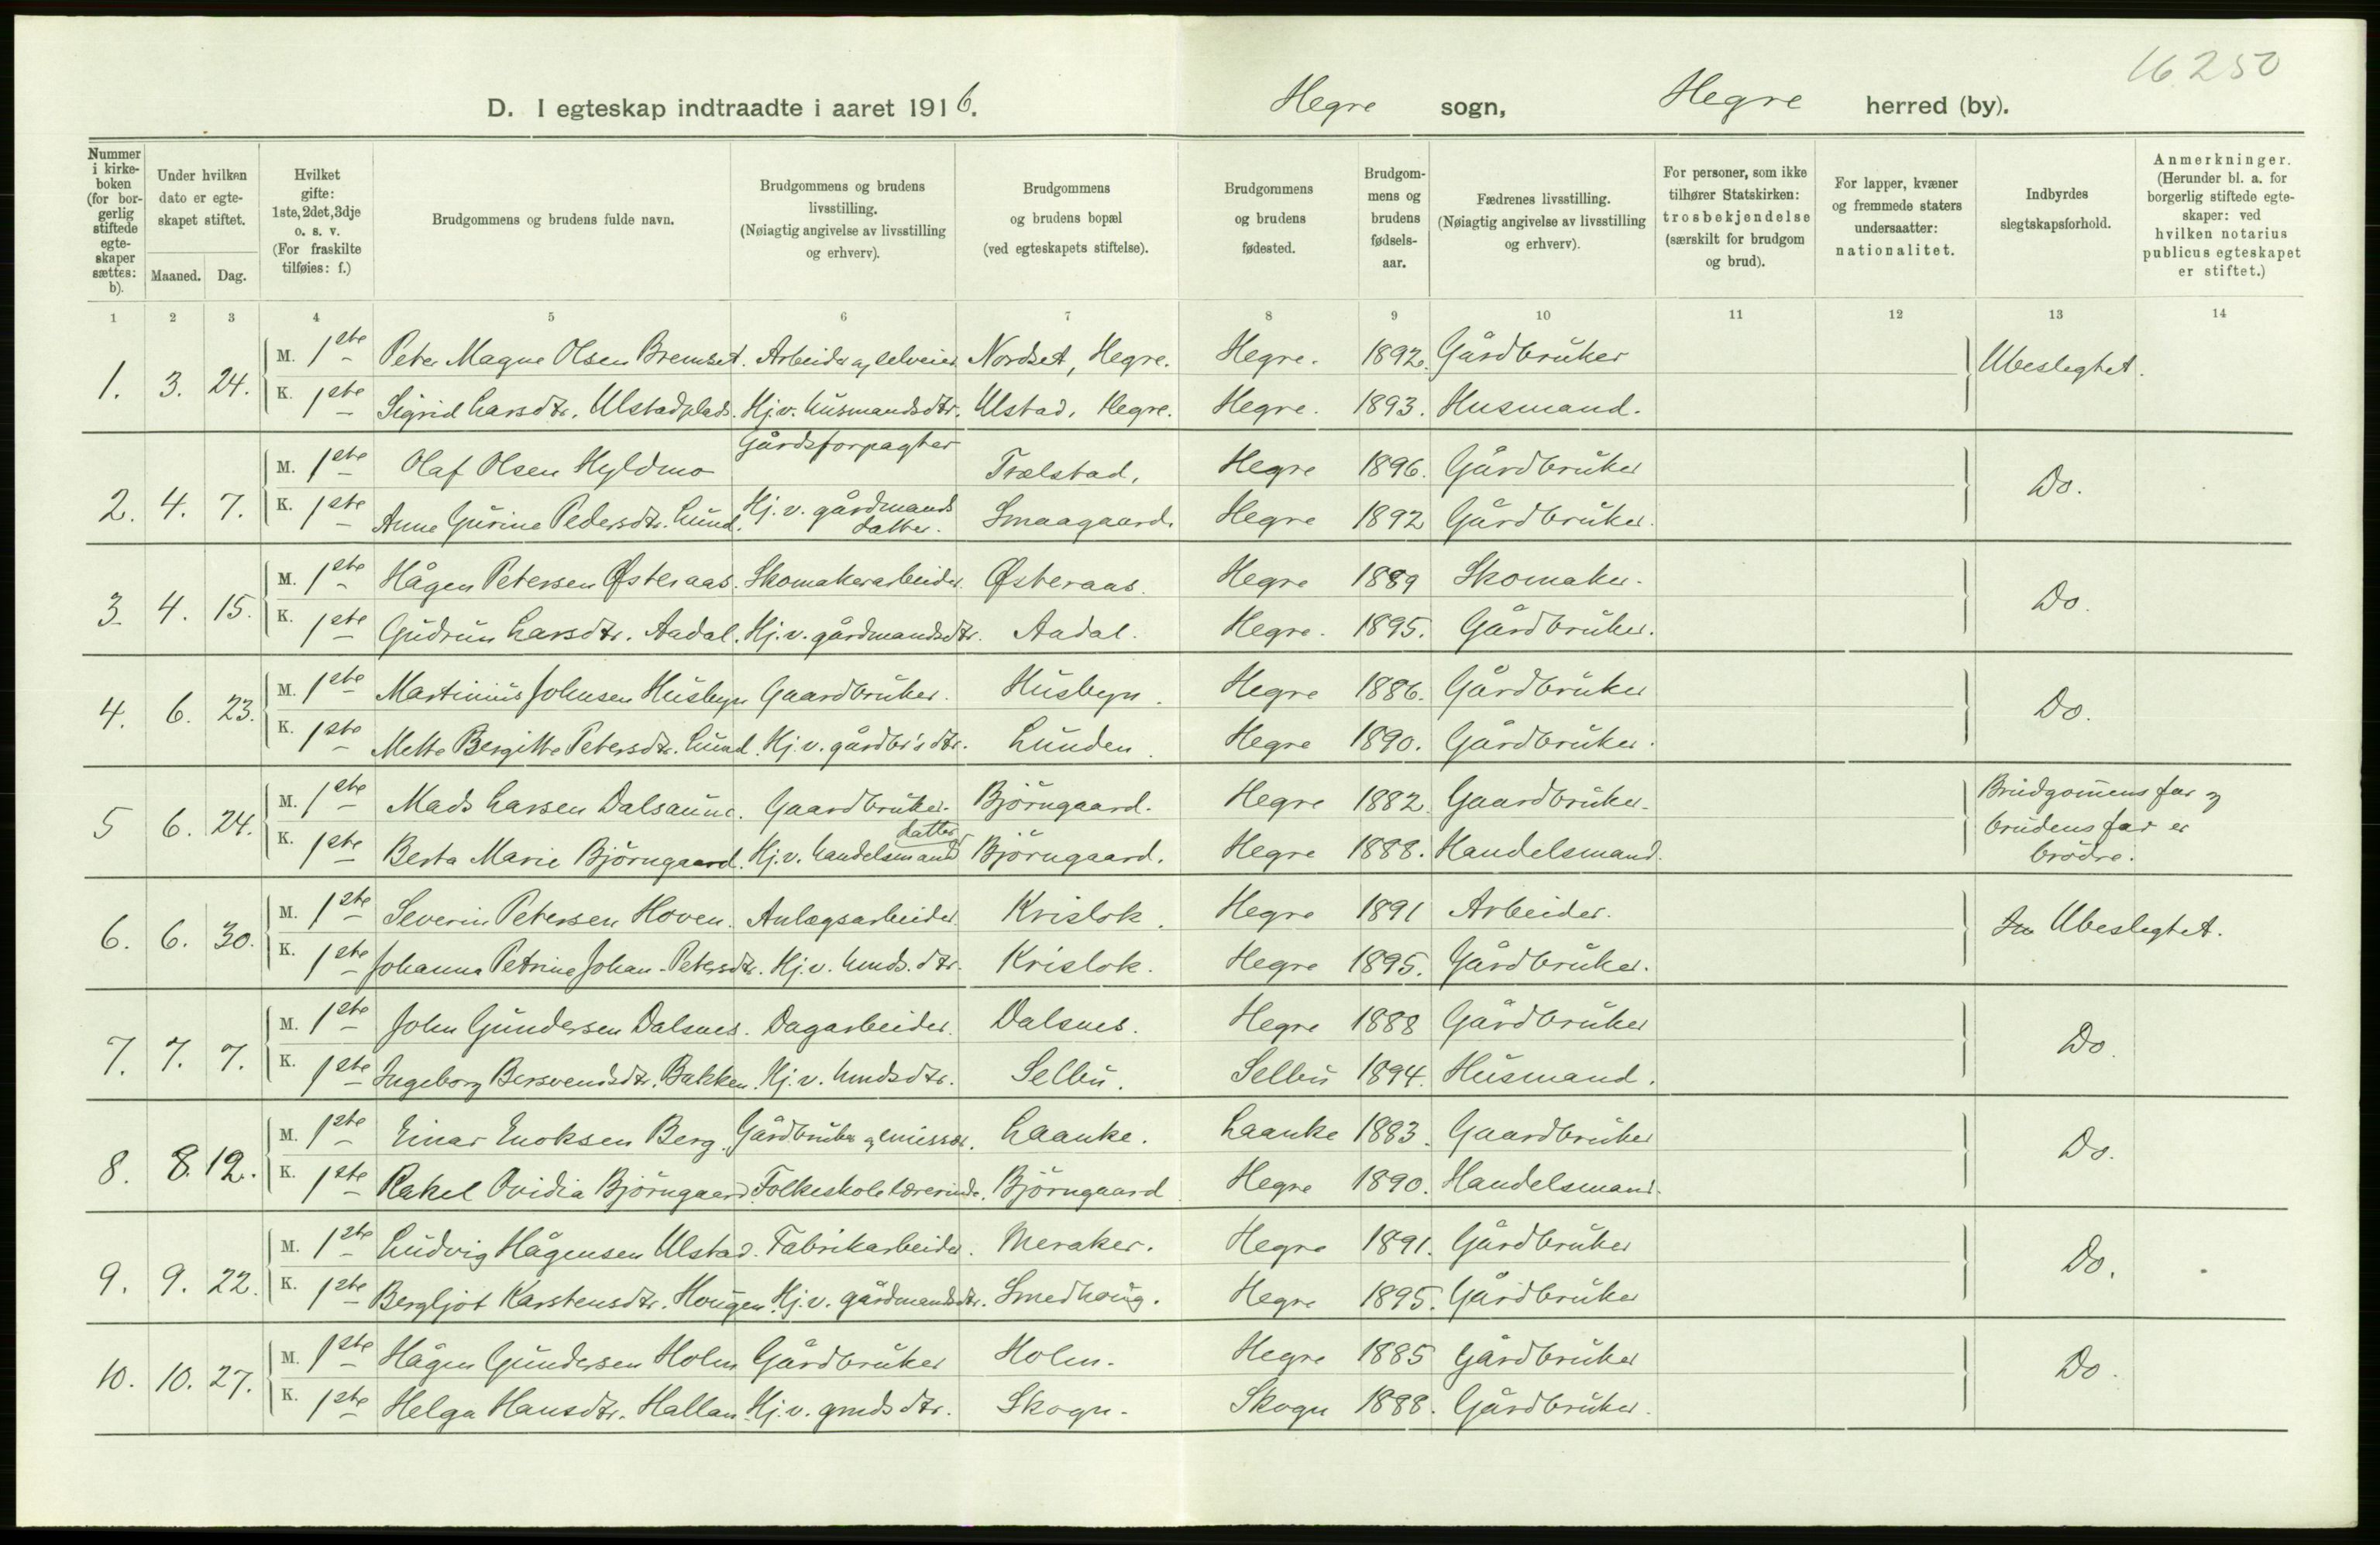 16250
D. I egteskap indtraadte i aaret 1916. Hegre sogn, Hegre herred (by).
Nummer i kirkeboken (for borgerlig stiftede egteskaper sættes: b). Under hvilken dato er egteskapet stiftet. Maaned. Dag. Hvilket gifte: 1ste, 2det, 3dje o. s. v. (For fraskilte tilføies: f.) Brudgommens og brudens fulde navn. Brudgommens og brudens livsstilling. (Nøiagtig angivelse av livsstilling og erhverv). Brudgommens og brudens bopæl (ved egteskapets stiftelse). Brudgommens og brudens fødested. Brudgommens og brudens fødselsaar. Fædrenes livsstilling. (Nøiagtig angivelse av livsstilling og erhverv). For personer, som ikke tilhører Statskirken: trosbekjendelse (særskilt for brudgom og brud). For lapper, kvæner og fremmede staters undersaatter: nationalitet. Indbyrdes slegtskapsforhold. Anmerkninger. (Herunder bl. a. for borgerlig stiftede egteskaper: ved hvilken notarius publicus egteskapet er stiftet.)
1 2 3 4 5 6 7 8 9 10 11 12 13 14
1. 3. 24. M. 1ste Peter Magne Olsen Bremset. Arbeider og selveier Nordset, Hegre. Hegre. 1892. Gårdbruker Ubeslegtet.
K. 1ste Sigrid Larsdtr. Ulstadplads. Hj.v. husmandsdtr. Ulstad, Hegre. Hegre. 1893. Husmand.
2. 4. 7. M. 1ste Olaf Olsen Hyldmo Gårdsforpagter Trælstad, Hegre 1896. Gårdbruker Do.
K. 1ste Anne Gurine Pedersdtr. Lund. Hj. v. gårdmands datter. Smaagaard. Hegre 1892 Gårdbruker.
3. 4. 15. M. 1ste Hågen Petersen Østeraas. Skomakerarbeider. Østeraas. Hegre 1889 Skomaker. Do.
K. 1ste Gudrun Larsdtr. Aadal. Hj. v. gårdmandsdtr. Aadal. Hegre. 1895. Gårdbruker.
4. 6. 23. M. 1ste Martinius Johnsen Husbyn Gaardbruker. Husbyn. Hegre 1886. Gårdbruker Do.
K. 1ste Mette Bergitte Petersdtr. Lund. Hj. v. gårdbr's dtr. Lunden. Hegre 1890. Gårdbruker.
5 6. 24. M. 1ste Mads Larsen Dalsaune. Gaardbruker. Björngaard. Hegre 1882. Gaardbruker. Brudgommens far og brudens far er brödre.
K. 1ste Berta Marie Björngaard. Hj. v. handelsmand datter Björngaard. Hegre 1888. Handelsmand.
6. 6. 30. M. 1ste Severin Petersen Hoven. Anlægsarbeider. Krislok. Hegre 1891 Arbeider. Ubeslegtet.
K. 1ste Johanna Petrine Johan-Petersdtr. Hj. v. hmds. dtr. Krislok. Hegre 1895. Gårdbruker.
7. 7. 7. M. 1ste John Gundersen Dalsnes. Dagarbeider. Dalsnes. Hegre 1888 Gårdbruker Do.
K. 1ste Ingeborg Bersvendsdtr. Bakken. Hj. v. hmdsdtr. Selbu. Selbu 1894. Husmand.
8. 8. 12. M. 1ste Einar Enoksen Berg. Gårdbruker og emissær. Laanke. Laanke 1883. Gaardbruker Do.
K. 1ste Rakel Ovidia Björngaard Folkeskolelærerinde. Björngaard. Hegre 1890. Handelsmand.
9. 9. 22. M. 1ste Ludvig Hågensen Ulstad. Fabrikarbeider. Meraker. Hegre 1891. Gårdbruker Do.
K. 1ste Bergljot Karstensdtr. Hougen. Hj. v. gårdmandsdtr. Smedhoug. Hegre 1895. Gårdbruker
10. 10. 27. M. 1ste Hågen Gundersen Holm Gårdbruker Holm. Hegre 1885 Gårdbruker Do.
K. 1ste Helga Hansdtr. Hallan. Hj. v. gmds dtr. Skogn. Skogn 1888. Gårdbruker.